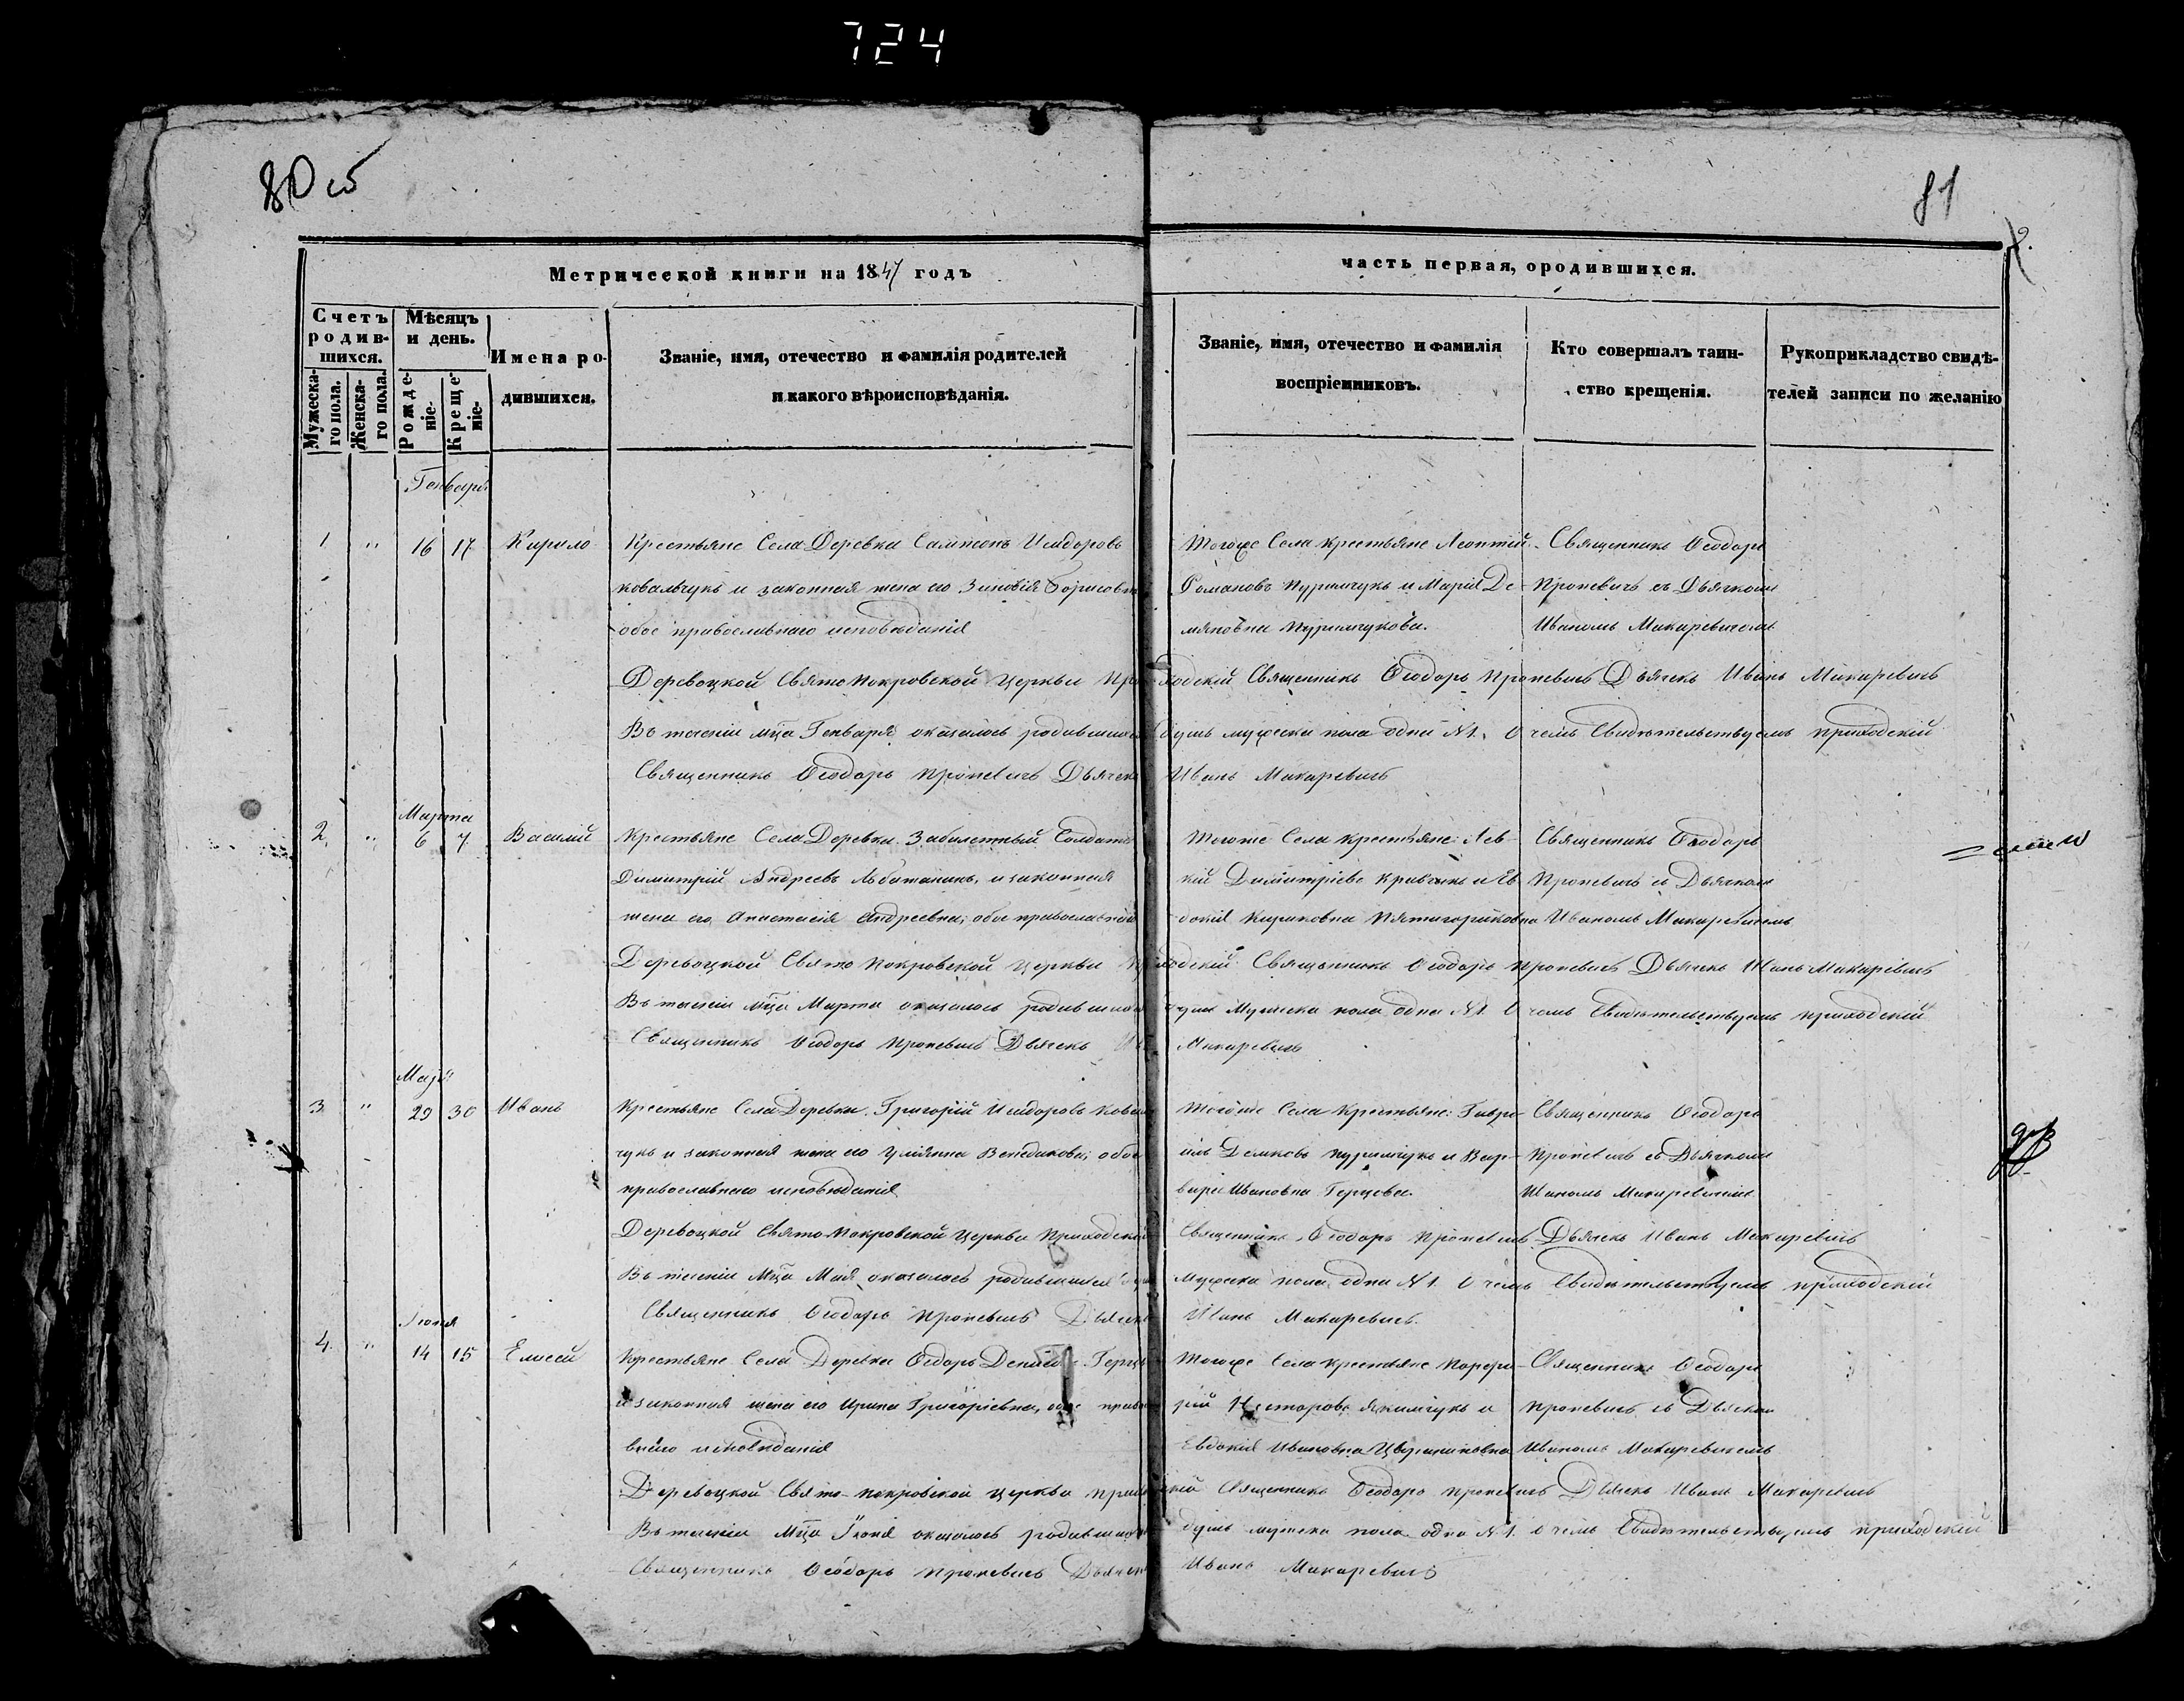 724
80 об
81
2.
Метрической книги на 1847 годъ
часть первая, ородившихся.
Счетъ родив-шихся.
Мужеска-го пола.
Женска-го пола.
Мѣсяцъ и день.
Рожде-ніе.
Креще-ніе.
Имена ро-дившихся.
Званіе, имя, отечество и фамилія родителей
и какого вѣроисповѣданія.
Званіе, имя, отечество и фамилія
воспріемниковъ.
Кто совершалъ таин-
ство крещенія.
Рукоприкладство свидѣ-
телей записи по желанію
Генваря
1 " 16 17 Кирило
Крестьяне Села Деревки Сампсонъ Исидоровъ
ковальчукъ и законная жена его Зиновія Борисовна
обое православнаго исповѣданія
Тогоже Села крестьяне Леонтій
Романовъ и Марія Де-
мяновна
Священникъ Ѳеодоръ
Проневичъ съ Дьячкомъ
Иваномъ Макаревичемъ
Деревоцкой Свято Покровской Церкви Приходскій Священникъ Ѳеодоръ Проневичъ Дьячекъ Иванъ Макаревичъ
Въ теченіи мца Генваря оказалось родившихся душъ мужеска пола одна №1. О чемъ Свидѣтельствуемъ приходскій
Священникъ Ѳеодоръ Проневичъ Дьячекъ Иванъ Макаревичъ
Марта
2 " 6 7 Василій
Крестьяне Села Деревки Забилетный Солдатъ
Димитрій Андреевъ и законная
жена его Анастасія Андреевна, обое православной
Тогоже Села крестьяне: Лев-
кій Димитріевъ кравчукъ и Ев
докія
Священникъ Ѳеодоръ
Проневичъ съ Дьячкомъ
Иваномъ Макаревичемъ
Деревоцкой Свято Покровской Церкви Приходскій Священникъ Ѳеодоръ Проневичъ Дьячекъ Иванъ Макаревичъ
Въ теченіи мца Марта оказалось родившихся душъ Мужеска пола одна №1. О чемъ Свидѣтельствуемъ приходскій
Священникъ Ѳеодоръ Проневичъ Дьячекъ Иванъ Макаревичъ
Маія
3 " 29 30 Иванъ
Крестьяне Села Деревки Григорій Исидоровъ Коваль
чукъ и законная жена его Уліянна обое
православнаго исповѣданія
Тогоже Села Крестьяне: Гаври-
илъ и Вар-
вара Ивановна Герцева.
Священникъ Ѳеодоръ
Проневичъ съ Дьячкомъ
Иваномъ Макаревичемъ
Деревоцкой Свято-Покровской Церкви Приходскій Священникъ Ѳеодоръ Проневичъ Дьячекъ Иванъ Макаревичъ
Въ теченіи Мца Маія оказалось родившихся душъ Мужеска пола одна №1. О чемъ Свидѣтельствуемъ приходскій
Священникъ Ѳеодоръ Проневичъ Дьячекъ Иванъ Макаревичъ.
Іюня
4 " 14 15 Елисей
Крестьяне Села Деревки Ѳедоръ
и законная жена его Ирина Григоріевна, обое право
внаго исповѣданія
Тогоже Села крестьяне Порфи-
рій Несторовъ Якимчукъ и
Евдокія Ивановна
Священникъ Ѳеодоръ
Проневичъ съ Дьячкомъ
Иваномъ Макаревичемъ
Деревоцкой Свято-покровской Церкви приходскій Священникъ Ѳеодоръ Проневичъ Дьячекъ Иванъ Макаревичъ
Въ теченіи Мца Іюня оказалось родившихся душъ мужеска пола одна №1. О чемъ Свидѣтельствуемъ приходскій
Священникъ Ѳеодоръ Проневичъ Дьячекъ Иванъ Макаревичъ